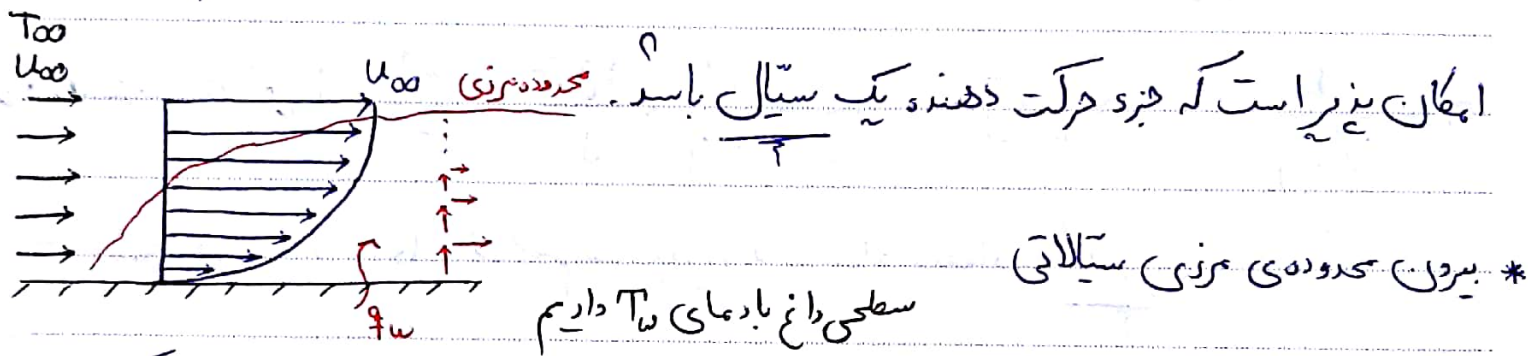 T∞
U∞
U∞
محدوده مرزی
امکان پذیر است که جزء حرکت دهنده یک سیّال باشد.
* بیرون محدوده‌ی مرزی سیّالاتی
سطحی داغ با دمای Tw داریم
qw